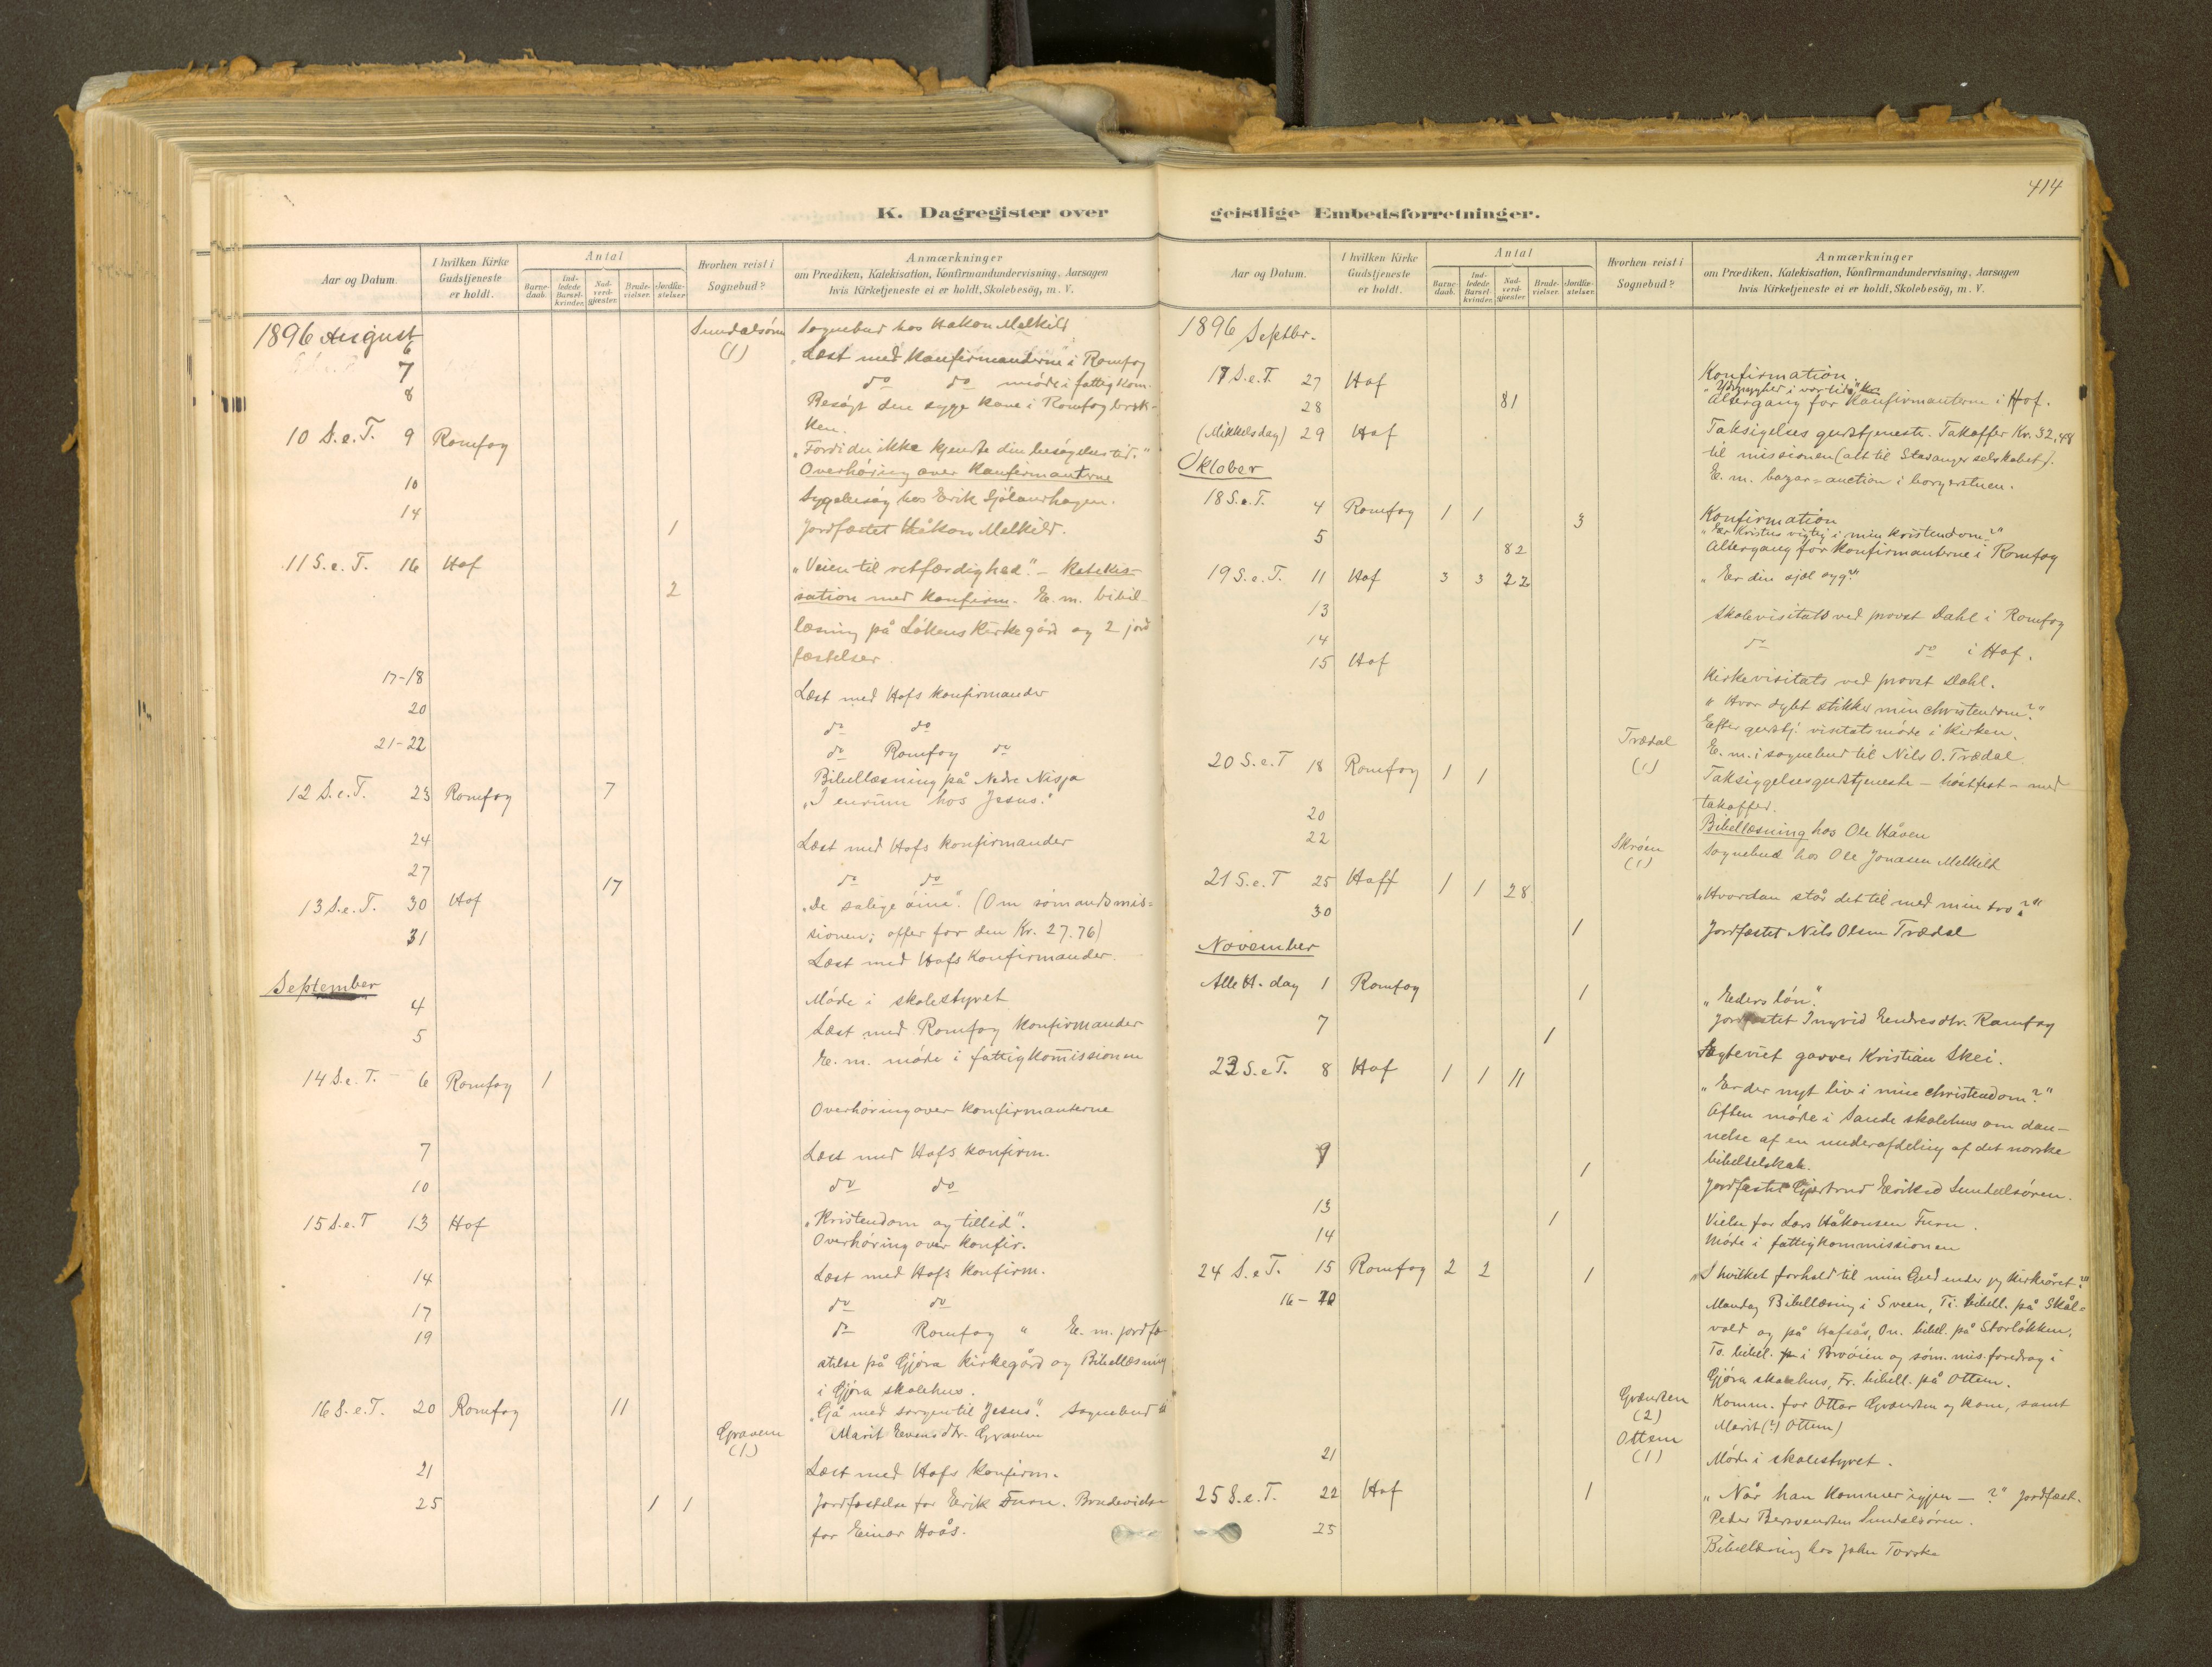 414
K. Dagregister over geistlige Embedsforretninger.
Aar og Datum.
I hvilken Kirke Gudstjeneste er holdt.
Antal
Barnedaab.
Indledede Barselkvinder.
Nadverdgjester.
Brudevielser.
Jordfæstelser.
Hvorhen reist i Sognebud?
Anmærkninger
om Prædiken, Katekisation, Konfirmandundervisning, Aarsagen
hvis Kirketjeneste ei er holdt, Skolebesög, m. V.
1896 August
6 Sundalsøren (1) Sognebud hos Hakon Melkild
7 Læst med Konfirmanderne i Romfog
8 do do møde i fattigkom.
Besøgt den syge kone i Romfogbrek-
ken.
10 S.e.T. 9 Romfog „Fordi du ikke kjendte din besøgelses tid."
Overhøring over Konfirmanterne
10 Sygebesøg hos Erik
14 1 Jordfæstet Håkon Melkild.
11 S.e.T. 16 Hof 2 „Veien til retfærdighed." – Katekis-
sation med Konfirm. E. m. bibel-
læsning på Løkens Kirkegård og 2 jord
fæstelser.
17-18 Læst med Hofs konfirmander
20 do do
21-22 do Romfog do
Bibellæsning på Nedre Nisja
12 S.e.T. 23 Romfog 7 „I enrum hos Jesus."
24 Læst med Hofs konfirmander
27 do do
13 S.e.T. 30 Hof 17 „De salige øine". (Om sømandsmis=
sionen; offer for den Kr. 27.76)
31 Læst med Hofs Konfirmander.
September
4 Møde i skolestyret
5 Læst med Romfog Konfirmander
E. m. møde i fattigkomissionen
14 S.e.T. 6 Romfog 1
Overhøring over Konfirmanterne
7 Læst med Hofs konfirm.
10 do do
15 S.e.T 13 Hof „Kristendom og tillid".
Overhøring over Konfir.
14 Læst med Hofs Konfirm.
17 do do
19 do Romfog " E. m. jordfæ-
stelse på Gjøra Kirkegård og Bibellæsning
i Gjøra skolehus.
16 S.e.T. 20 Romfog 11 „Gå med sorgen til Jesus". Sognebud
Gravem (1) Marit Evensdtr. Gravem
21 Læst med Hofs Konfirm.
25 1 1 Jordfæstelse for Erik Furu. Brudevielse
for Einar Hoås.
1896 Septbr.
17 S.e.T. 27 Hof Konfirmation.
„Ydmyghed i vor tid"
28 81 Altergang for Konfirmanterne i Hof.
(Mikkelsdag) 29 Hof Taksigelses gudstjeneste. Takoffer Kr. 32,48
til missionen (alt til Stavanger selskabet).
E. m. bazar=auction i borgerstuen.
Oktober
18 S.e.T. 4 Romfog 1 1 3 Konfirmation
„Er Kristus vigtig i min kristendom?"
5 82 Altergang for Konfirmanterne i Romfog
19 S.e.T. 11 Hof 3 3 22 „Er din sjæl syg?"
13 Skolevisitats ved provst Dahl i Romfog
14 do do i Hof.
15 Hof Kirkevisitats ved provst Dahl.
„Hvor dybt stikker min christendom?"
Efter gudstj. visitatsmøde i Kirken.
Trædal (1) E. m. i sognebud til Nils O. Trædal
20 S.e.T 18 Romfog 1 1 Taksiggelsesgudstjeneste – høstfest – med
takoffer.
20 Bibellæsning hos Ole Håven
22 Skrøen (1) Sognebud hos Ole Jonasen Melkild
21 S.e.T 25 Hoff 1 1 28 „Hvordan står det til med min tro?"
30 1 Jordfæstet Nils Olsen Trædal
November
Alle H. dag 1 Romfog 1 „Eders løn".
Jordfæstet Ingrid Endresdtr. Romfog
7 1 Ægteviet garver Kristian Skei.
23 S.e T. 8 Hof 1 1 11 „Er der nyt liv i min christendom?"
Aften møde i Sande skolehus om dan-
nelse af en underafdeling af det norske
bibelselskab.
9 1 Jordfæstet Gjertrud Eriksd Sundalsøren.
13 1 Vielse for Lars Håkonsen Furu.
14 Møde i fattigkommissionen
24 S.e T. 15 Romfog 2 2 1 „I hvilket forhold til min Gud ender jeg kirkeåret?"
16 – 20 Mandag Bibellæsning i Sveen, Ti. bibell. på Skål=
vold og på Hofsås, On. bibel. på Storløkken,
To. bibel. i Brøien og søm. mis. foredrag i
Gjøra skolehus, Fr. bibell. på Ottem.
Grøndsten (2) Komm. for Ottar og kone, samt
Ottem (1) Marit (?) Ottem)
21 Møde i skolestyret.
25 S.e.T. 22 Hof 1 „Når han kommer igjen – ?" Jordfæst.
Peder Sundalsøren.
25 Bibellæsning hos John Torske